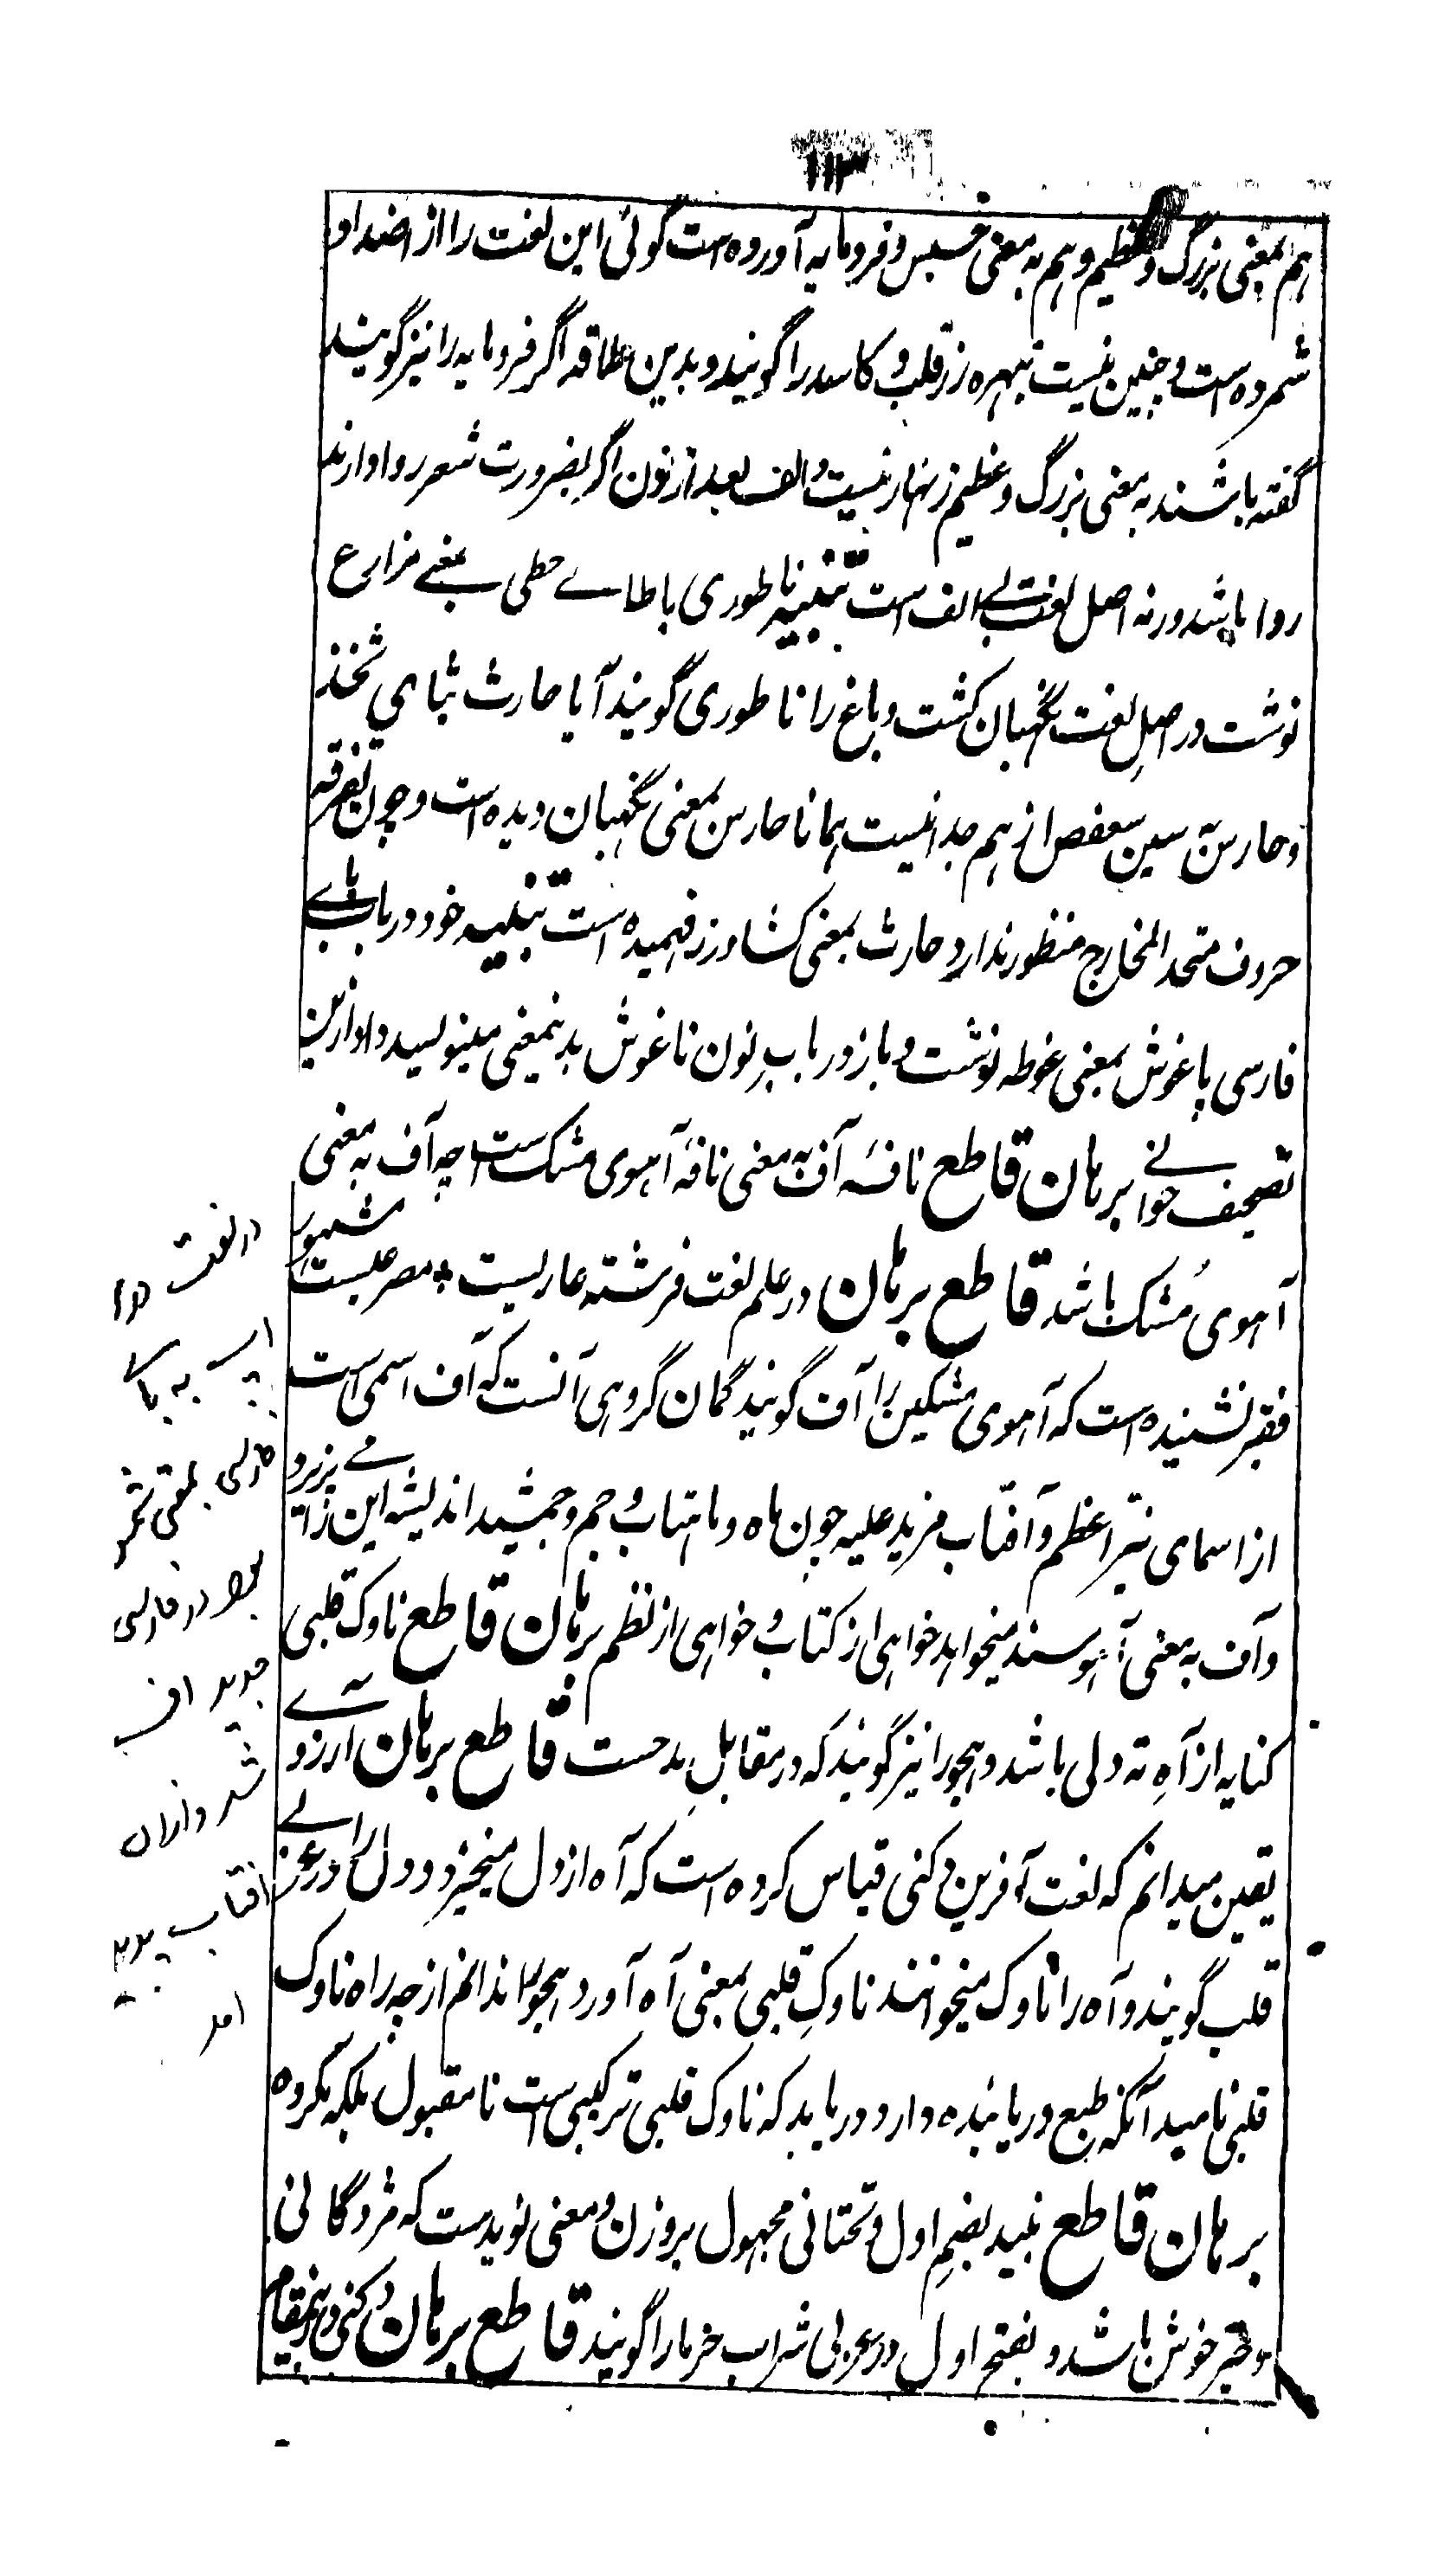 ۱۱۳
هم بمعنی بزرگ و عظیم و هم به معنی خسیس و فرومایه آورده است گوئی این لغت را از اضداد
شمرده است و چنین نیست نبهره زر قلب و کاسد را گویند و بدین علاقه اگر فرومایه را نیز گویند
گفته باشند به معنی بزرگ و عظیم زنهار نیست و الف بعد از نون اگر بضرورت شعر روا دارند
روا باشد ورنه اصل لغت بے الف است تنبیه ناطوری با طاے حطی بمعنے مزارع
نوشت در اصلِ لغت نگهبان کشت و باغ را ناطوری گویند آیا حارث بثای ثخذ
و حارس به سین سعفص از هم جدا نیست همانا حارس بمعنی نگهبان دیده است و چون تفرقه
حروف متحد المخارج منظور ندارد حارث بمعنی کشاورز فهمیده است تنبیه خود در باب باے
فارسی پاغوش بمعنی غوطه نوشت و باز در بابِ نون ناغوش بدینمعنی مینویسد داد ازین
تصحیف خوانے برهان قاطع نافۀ آف به معنی نافۀ آهوی مشک ست چه آف به معنی
آهوی مُشک باشد قاطع برهان در علم لغت فرشته عاریست * مصرعیست مشهور
فقیر نشنیده است که آهوی مشکین را آف گویند گمان گروهی آنست که آف اسمی است
از اسمای نیّر اعظم و آفتاب مزید علیه چون ماه و ماهتاب و جم و جمشید اندیشه این را مے پزیرد
و آف به معنی آهو سند میخواهد خواهی از کتاب و خواهی از نظم برهان قاطع ناوک قلبی
کنایه از آهِ ته دلی باشد و هجو را نیز گویند که در مقابلِ مدحست قاطع برهان ارزوے
یقین میدانم که لغت آفرین دکنی قیاس کرده است که آه از دل میخیزد و دل را در عربے
قلب گویند و آه را ناوک میخوانند ناوکِ قلبی بمعنی آه آورد هجو را ندانم از چه راه ناوک
قلبی نامید آنکه طبع دریابنده دارد دریابد که ناوک قلبی ترکیبی است نامقبول بلکه مکروه
برهان قاطع نبید بضمِ اول و تحتانی مجهول بروزن و معنی نوید ست که مژدگانی
و خبر خوش باشد و بفتح اول در عربی شراب خرما را گویند قاطع برهان دکنی درینمقام
در لغت
به
فارسی بمعنی
در فارسی
جدید اف
شد و ازان
افتاب پدید
امد